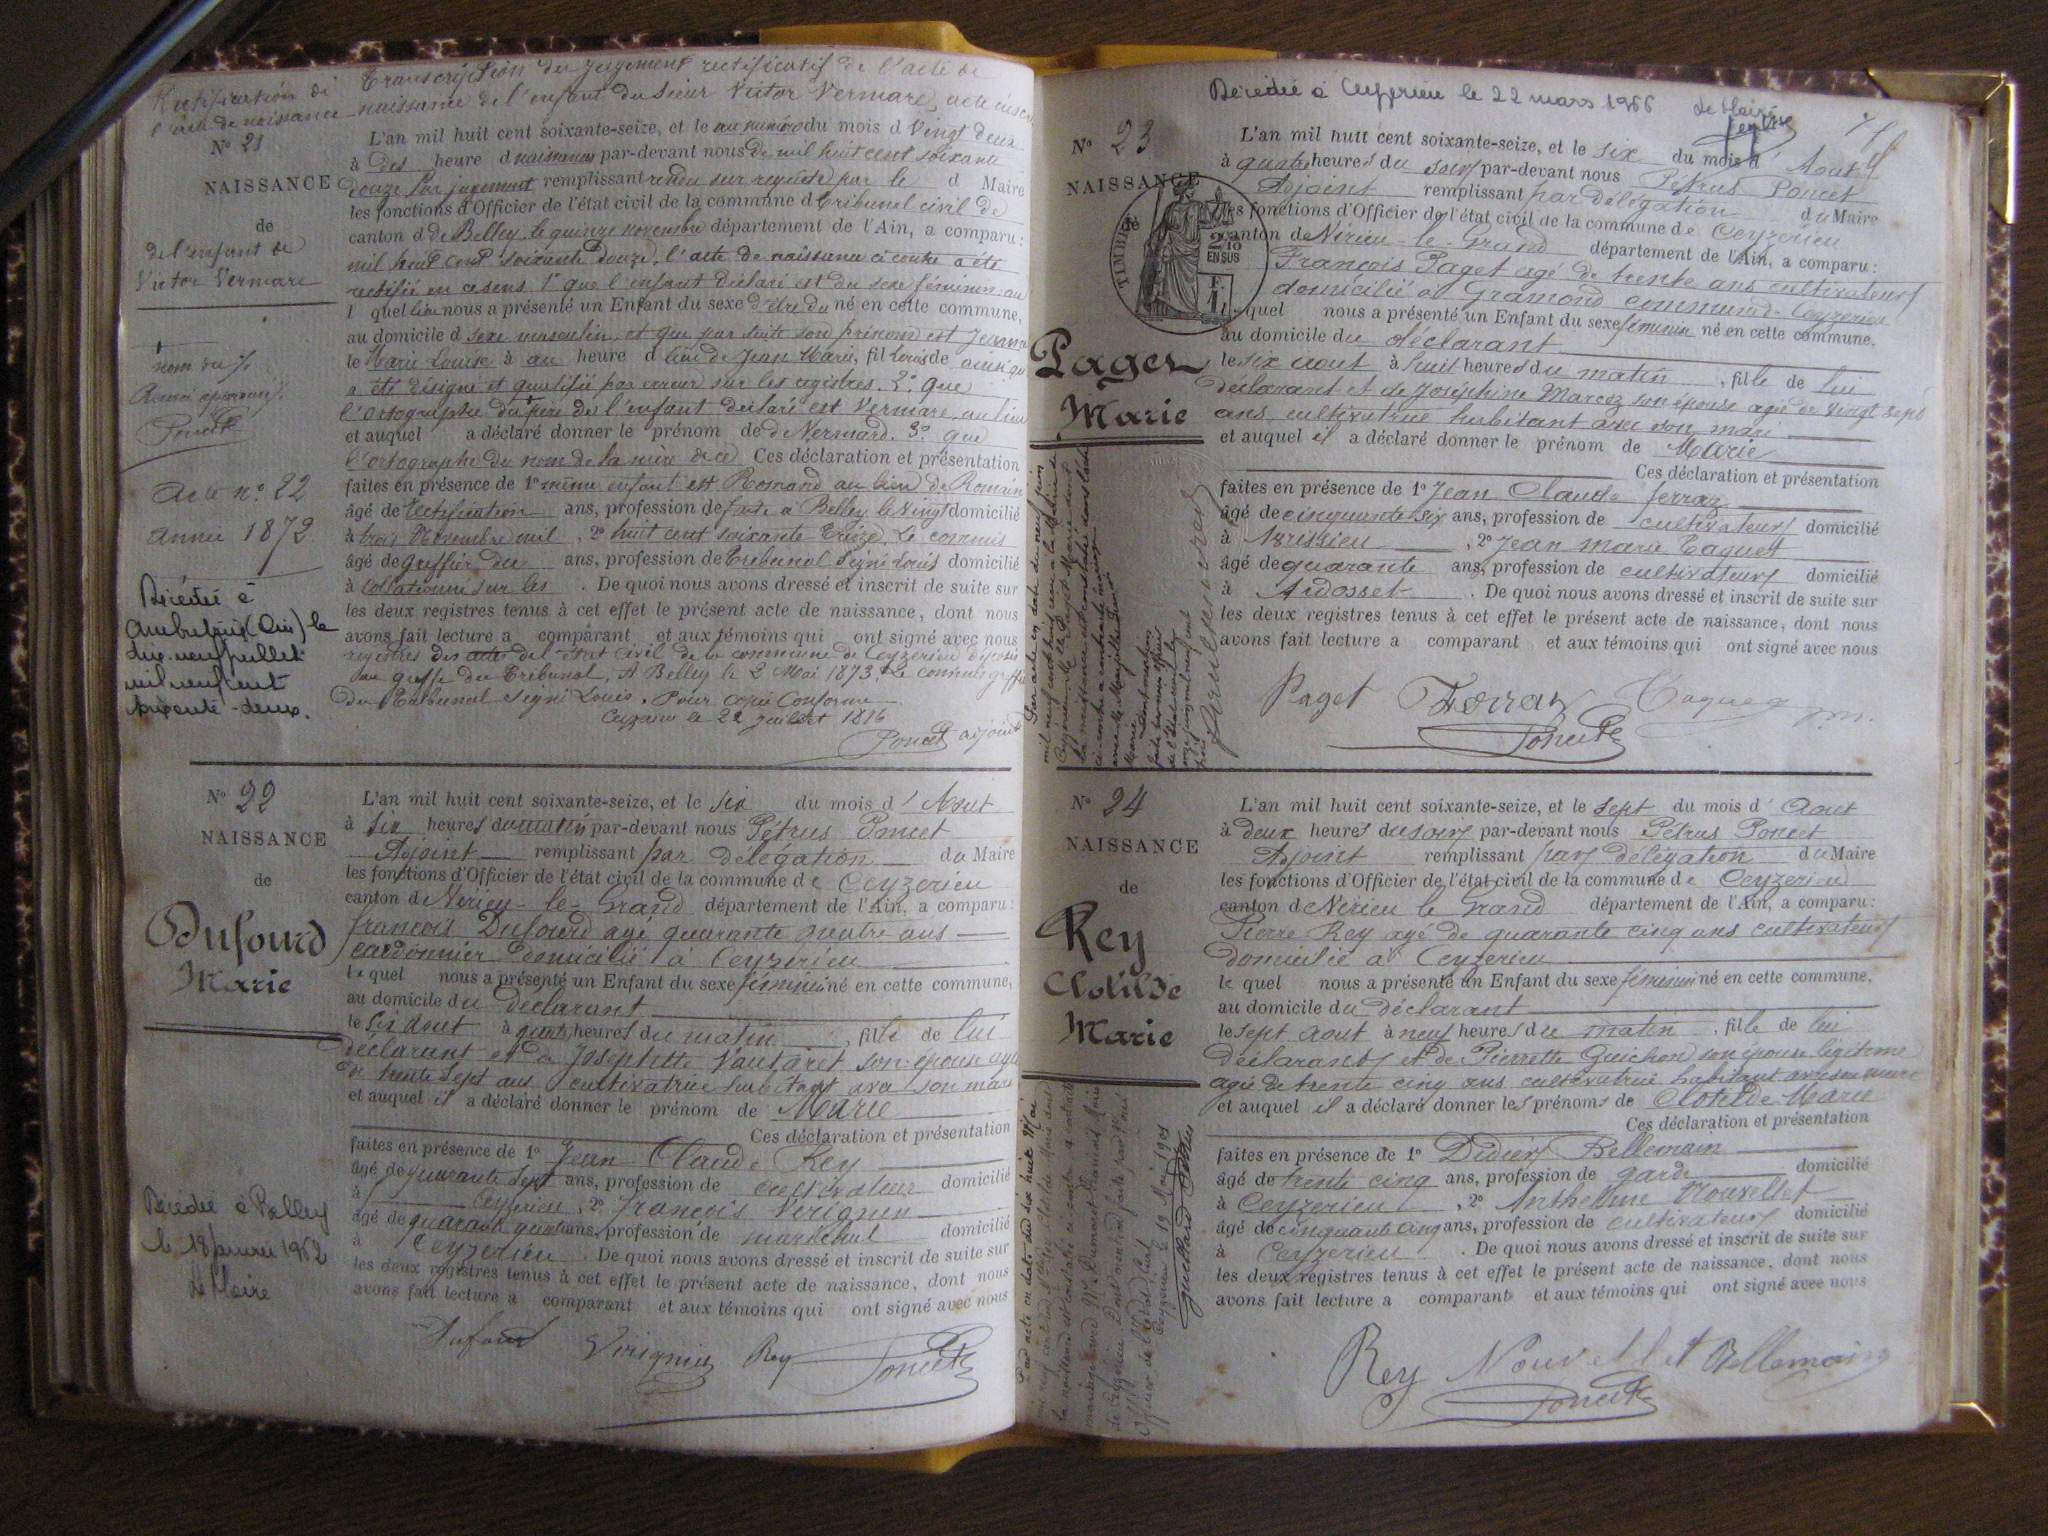 Transcription du jugement rectificatif de l'acte de
Rectification de
l'acte de naissance
naissance de l'enfant du Sieur Victor Vermare, acte inscrit
N° 21
NAISSANCE
de
de l'enfant de
Victor Vermare
L'an mil huit cent soixante-seize, et le au numéro du mois d Vingt deux
à des heure d naissances par-devant nous De mil huit cent soixante
douze Par jugement remplissant rendu sur requête par le d Maire
les fonctions d'Officier de l'état civil de la commune d Tribunal civil de
canton d de Belley le quinze novembre département de l'Ain, a comparu:
mil huit cent soixante douze, l'acte de naissance ci contre a été
rectifié en ce sens 1° que l'enfant déclaré est du sexe féminin au
l quel lieu nous a présenté un Enfant du sexe d'être du né en cette commune,
au domicile d sexe masculin et que par suite son prénom est Jeanne
le Marie Louise à au heure d lieu de Jean Marie, fil Louis de ainsi qu
a été désigné et qualifié par erreur sur les registres. 2° que
l'ortographe du père de l'enfant déclaré est Vermare au lieu
et auquel a déclaré donner le prénom de de Vermard. 3° que
l'ortographe du nom de la mère de ce Ces déclaration et présentation
faites en présence de 1° même enfant est Romand au lieu de Romain
âgé de rectification ans, profession de faite à Belley le vingt domicilié
à trois Novembre mil , 2° huit cent soixante treize. Le commis
âgé de greffier du ans, profession de Tribunal Signé Louis domicilié
à collationné sur les . De quoi nous avons dressé et inscrit de suite sur
les deux registres tenus à cet effet le présent acte de naissance, dont nous
avons fait lecture a comparant et aux témoins qui ont signé avec nous
registres des actes de l'état civil de la commune de Ceyzerieu déposés
au greffe du Tribunal. A Belley le 2 Mai 1873. Le commis greffier
du Tribunal Signé Louis. Pour copie Conforme
Ceyzerieu le 22 juillet 1876
Poncet adjoint
nom du
Renvoi approuvé
Poncet
Acte n° 22
Année 1872
Décédée à
le
dix-neuf juillet
mil neuf cent
soixante-deux.
N° 22
NAISSANCE
de
Dufourd
Marie
L'an mil huit cent soixante-seize, et le six du mois d' Aout
à six heures du matin par-devant nous Pétrus Poncet
Adjoint remplissant par délégation du Maire
les fonctions d'Officier de l'état civil de la commune de Ceyzerieu
canton de Virieu-le-Grand département de l'Ain, a comparu:
françois Dufourd agé quarante quatre ans
cordonnier domicilié à Ceyzerieu
lequel nous a présenté un Enfant du sexe féminin né en cette commune,
au domicile du déclarant
le six Aout à quatre heures du matin , fille de lui
déclarant et de Josephette Vautaret son épouse agée
de trente sept ans cultivatrice habitant avec son mari
et auquel il a déclaré donner le prénom de Marie
Ces déclaration et présentation
faites en présence de 1° Jean Claude Rey
âgé de quarante sept ans, profession de cultivateur domicilié
à Ceyzerieu , 2° François Virignin
âgé de quarante quatre ans, profession de maréchal domicilié
à Ceyzerieu . De quoi nous avons dressé et inscrit de suite sur
les deux registres tenus à cet effet le présent acte de naissance, dont nous
avons fait lecture a comparant et aux témoins qui ont signé avec nous
Dufourd Virignin Rey Poncet
Décédée à Belley
le 18 janvier 1962
Le Maire
Décédée à Ceyzerieu le 22 mars 1966 Le Maire
N° 23
NAISSANCE
de
TIMBRE
2/10
EN SUS
Paget
Marie
L'an mil huit cent soixante-seize, et le six du mois d' Aout
à quatre heures du soir par-devant nous Pétrus Poncet
Adjoint remplissant par délégation du Maire
les fonctions d'Officier de l'état civil de la commune de Ceyzerieu
canton de Virieu-le-Grand département de l'Ain, a comparu:
François Paget agé de trente ans cultivateur
domicilié à Gramond commune de Ceyzerieu
lequel nous a présenté un Enfant du sexe féminin né en cette commune,
au domicile du déclarant
le six aout à huit heures du matin , fille de lui
déclarant et de Joséphine Marcoz son épouse agée de vingt sept
ans cultivatrice habitant avec son mari
et auquel il a déclaré donner le prénom de Marie
Ces déclaration et présentation
faites en présence de 1° Jean Claude Ferraz
âgé de cinquante six ans, profession de cultivateur domicilié
à , 2° Jean Marie Taguet
âgé de quarante ans, profession de cultivateur domicilié
à Ardosset . De quoi nous avons dressé et inscrit de suite sur
les deux registres tenus à cet effet le présent acte de naissance, dont nous
avons fait lecture a comparant et aux témoins qui ont signé avec nous
Paget Ferraz Taguet
Poncet
N° 24
NAISSANCE
de
Rey
Clotilde
Marie
L'an mil huit cent soixante-seize, et le sept du mois d' Aout
à deux heures du soir par-devant nous Pétrus Poncet
Adjoint remplissant par délégation du Maire
les fonctions d'Officier de l'état civil de la commune de Ceyzerieu
canton de Virieu le Grand département de l'Ain, a comparu:
Pierre Rey agé de quarante cinq ans cultivateur
domicilié à Ceyzerieu
lequel nous a présenté un Enfant du sexe féminin né en cette commune,
au domicile du déclarant
le sept aout à neuf heures du matin , fille de lui
déclarant et de Pierrette Guichon son épouse légitime
agée de trente cinq ans cultivatrice habitant avec son mari
et auquel il a déclaré donner les prénoms de Clotilde Marie
Ces déclaration et présentation
faites en présence de 1° Didier Bellemain
âgé de trente cinq ans, profession de garde domicilié
à Ceyzerieu , 2° Anthelme Nouvellet
âgé de cinquante cinq ans, profession de cultivateur domicilié
à Ceyzerieu . De quoi nous avons dressé et inscrit de suite sur
les deux registres tenus à cet effet le présent acte de naissance, dont nous
avons fait lecture a comparant et aux témoins qui ont signé avec nous
Rey Nouvellet Bellemain
Poncet